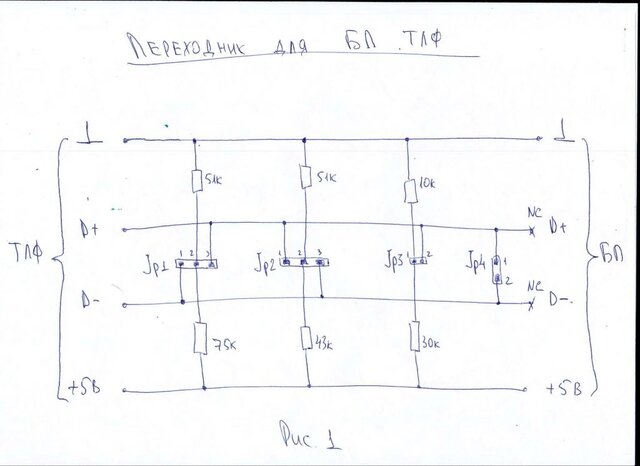 ПЕРЕХОДНИК ДЛЯ БП ТЛФ
⊥ ⊥
51к 51к 10к
D+ NC D+
ТЛФ Jp1 1 2 3 Jp2 1 2 3 Jp3 1 2 Jp4 1 2 БП
D- NC D-
75к 43к 30к
+5В +5В
Рис. 1